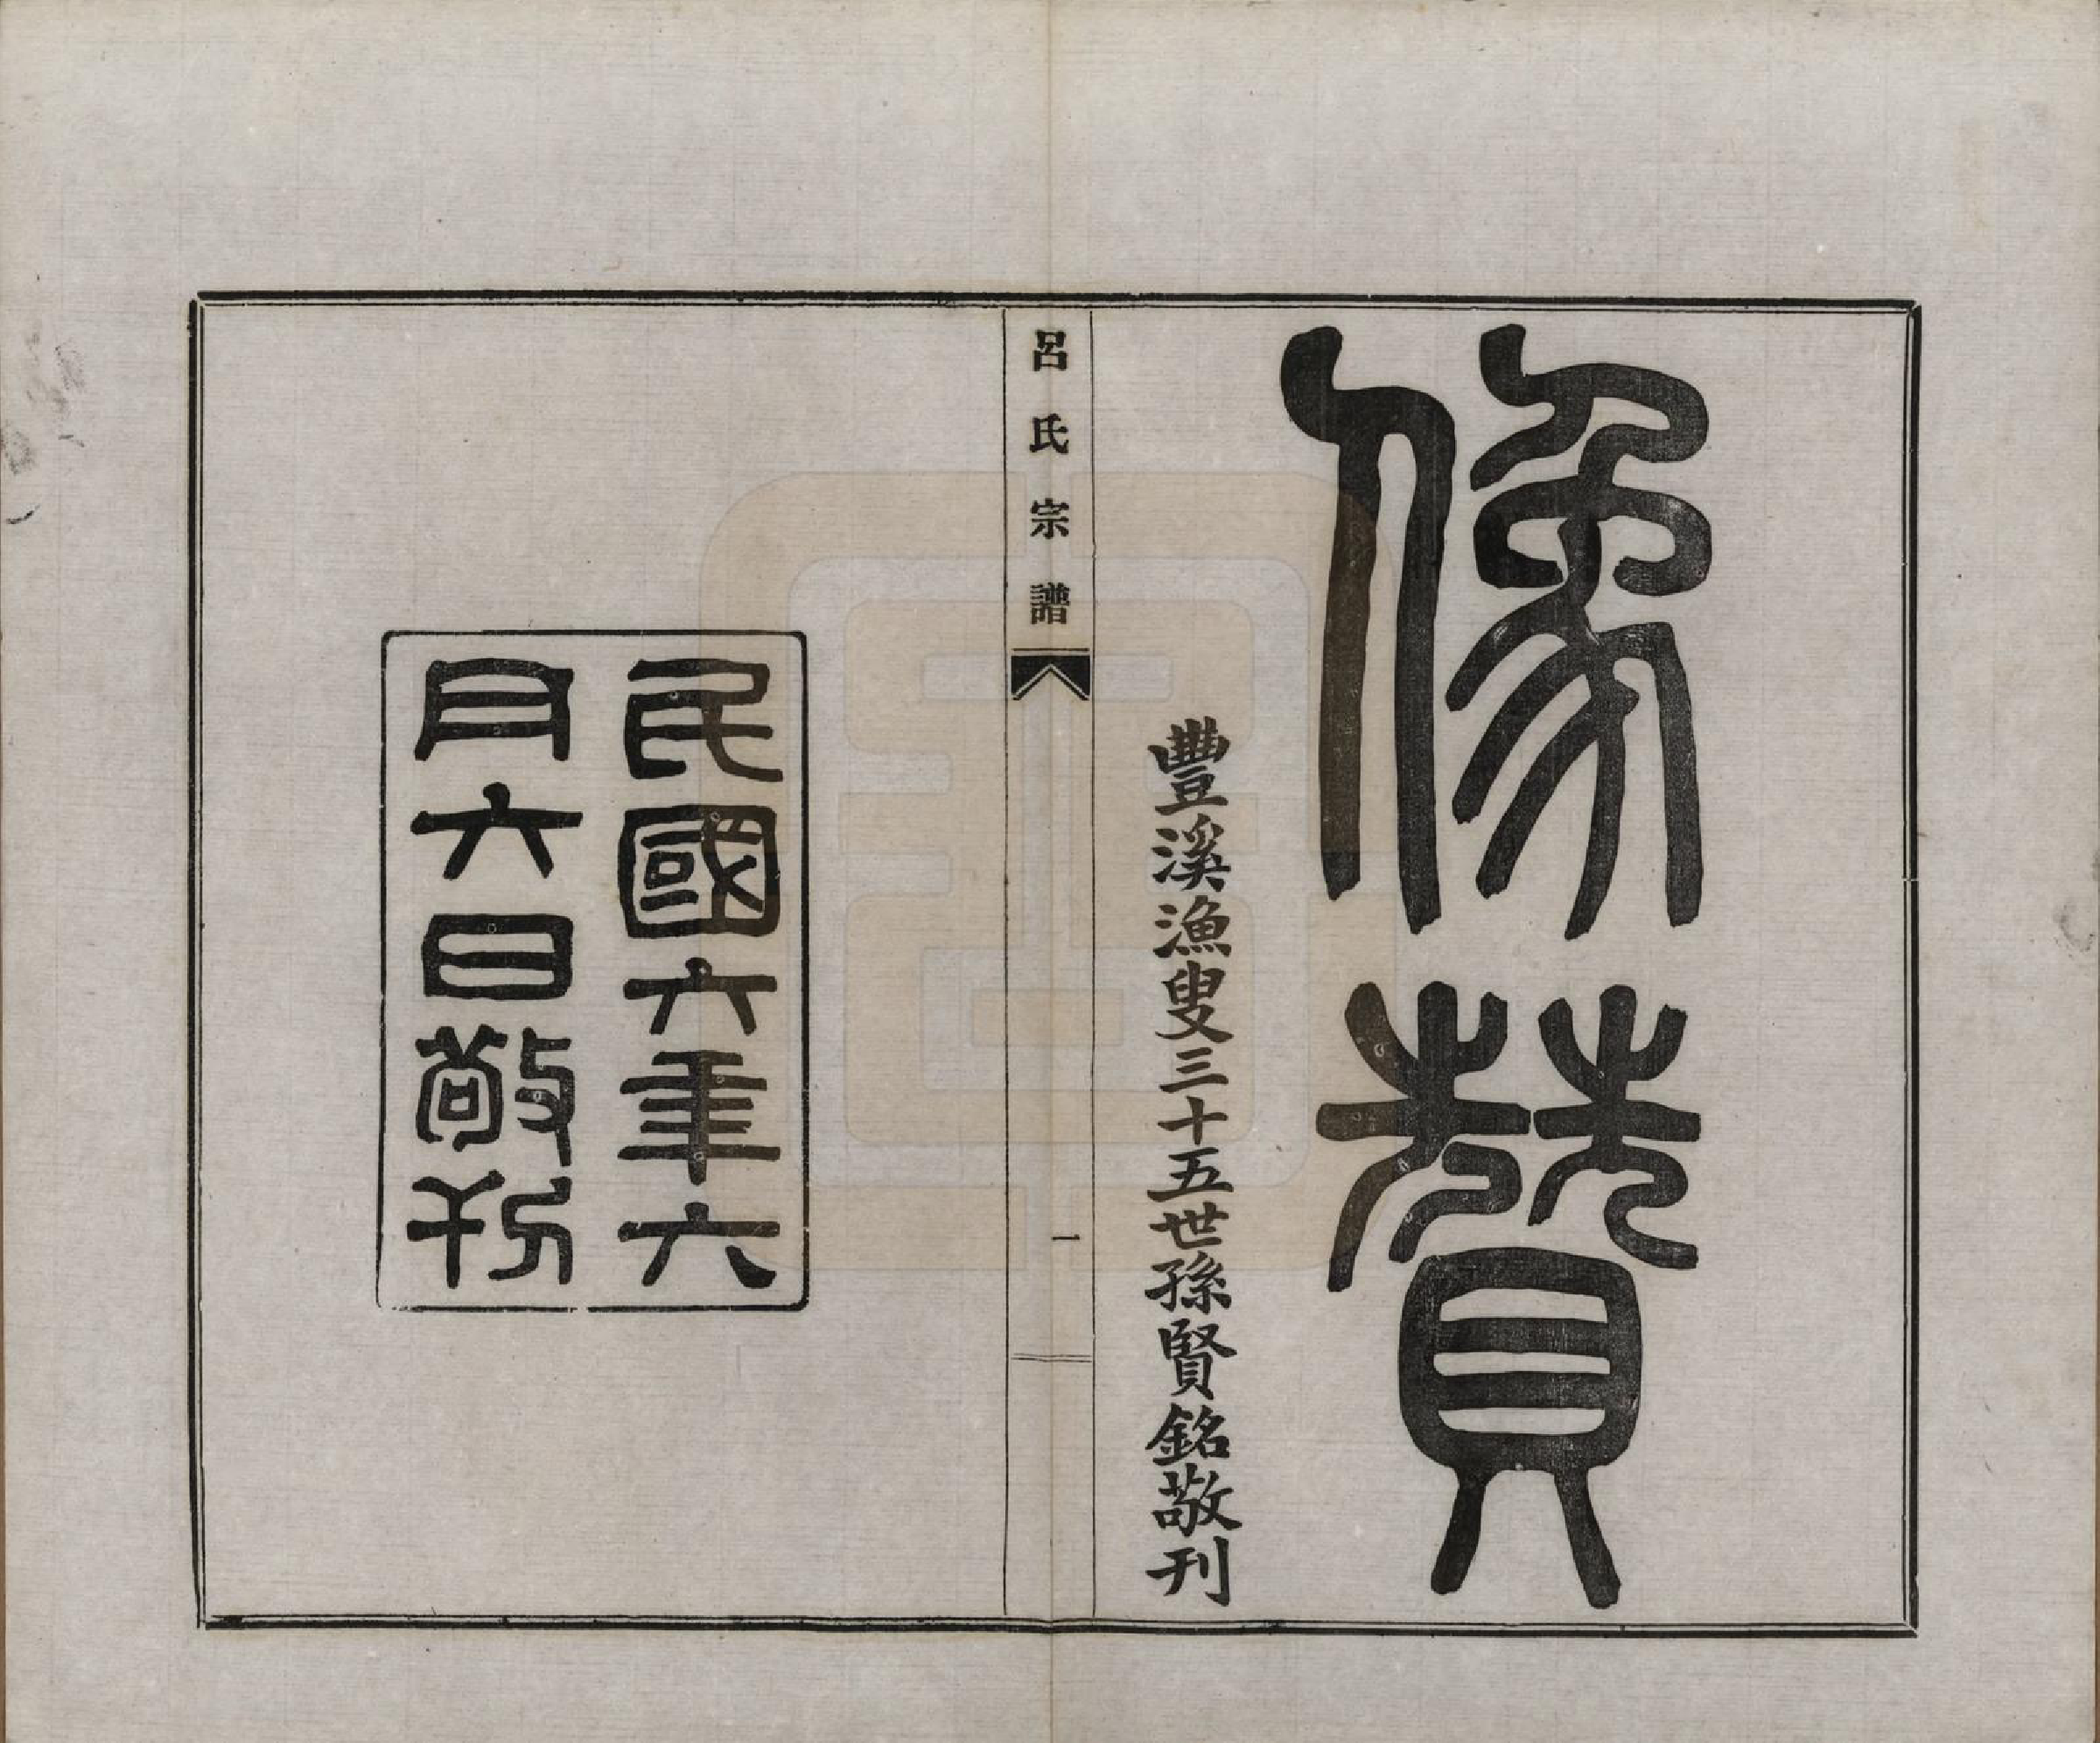 像贊
豐溪漁叟三十五世孫賢銘敬刊
呂氏宗譜
一
民國六年六
月六日敬刊